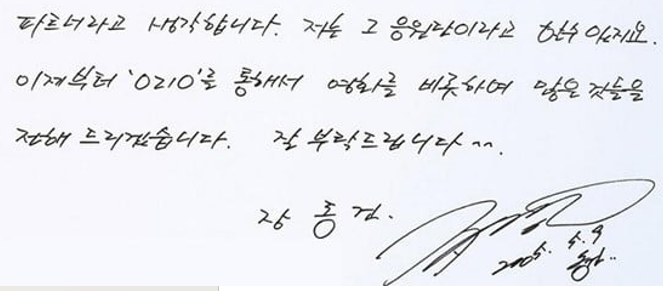 파트너라고 생각합니다. 저는 그 응원단이라고 할수 있지요.
이제부터 '0210'를 통해서 영화를 비롯하여 많은 것들을
전해 드리겠습니다. 잘 부탁드립니다^^.
장 동 건.
2005. 5. 9